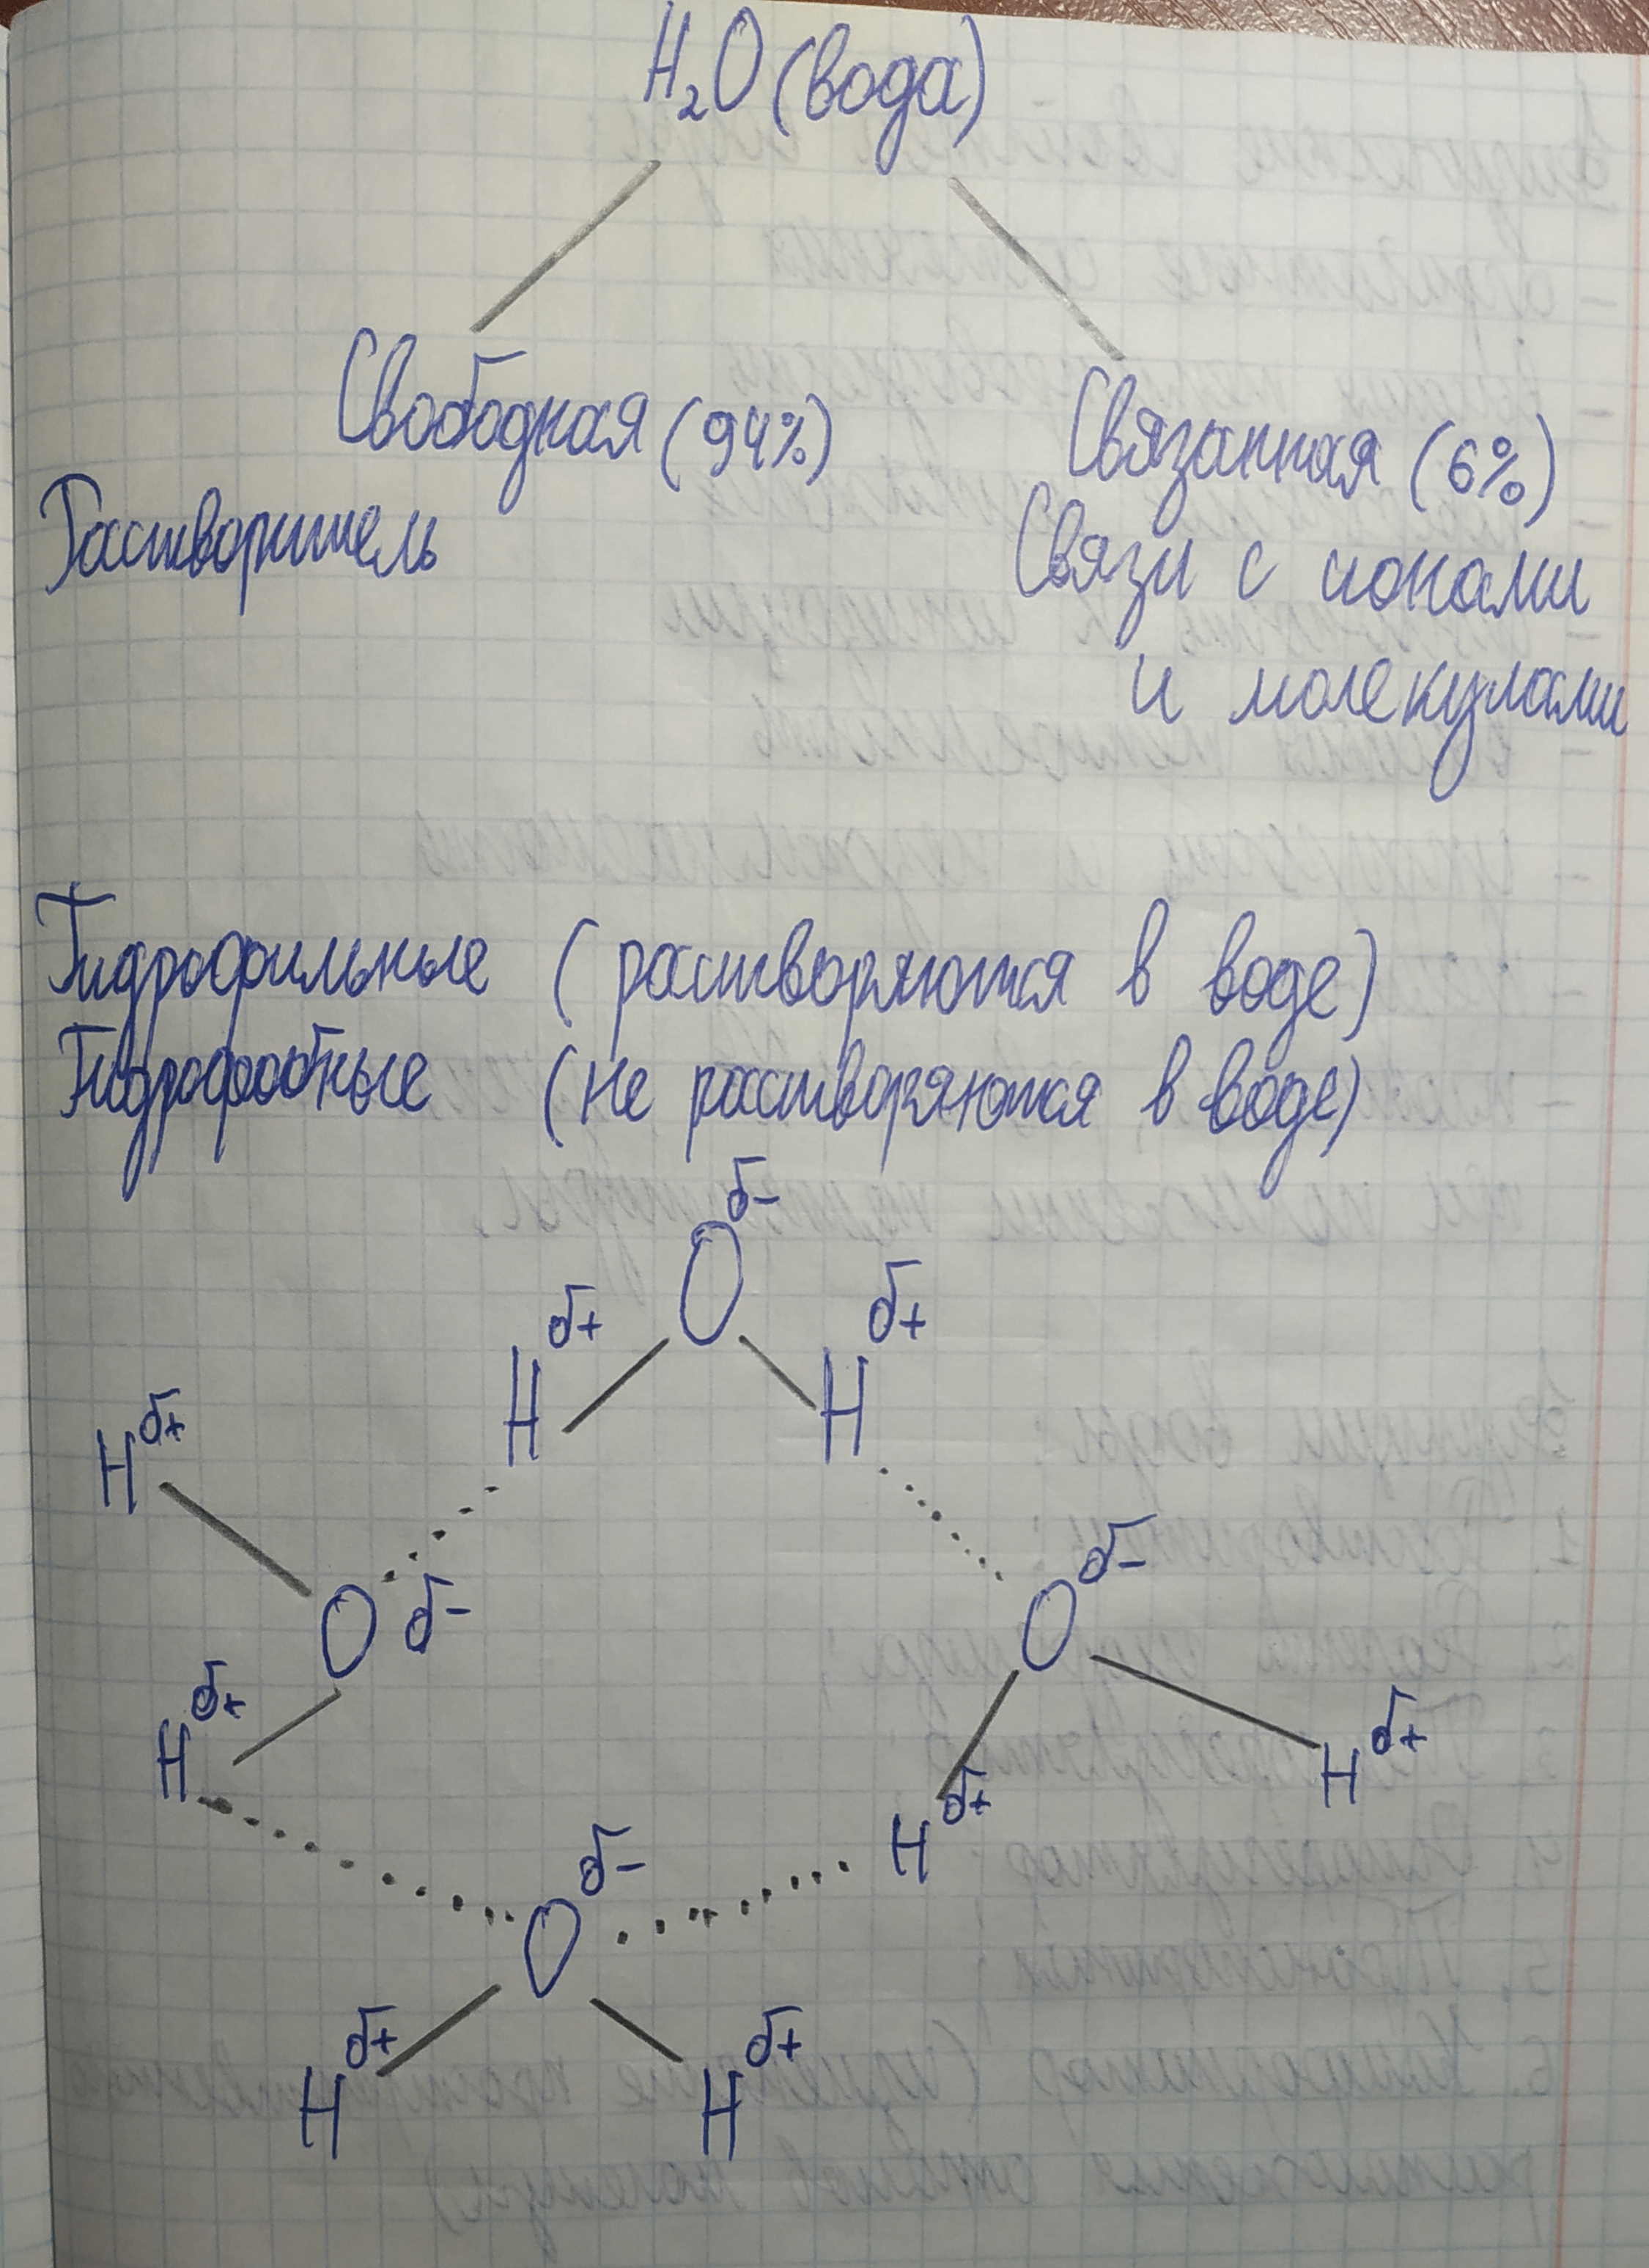 H₂O (вода)
Свободная (94%) Связанная (6%)
Растворитель Связи с ионами
и молекулами
Гидрофильные (растворяются в воде)
Гидрофобные (не растворяются в воде)
δ-
O
δ+ δ+
H H
δ+
H
δ-
O δ- O
δ+ δ+
H H
δ+
H
δ-
O
δ+ δ+
H H